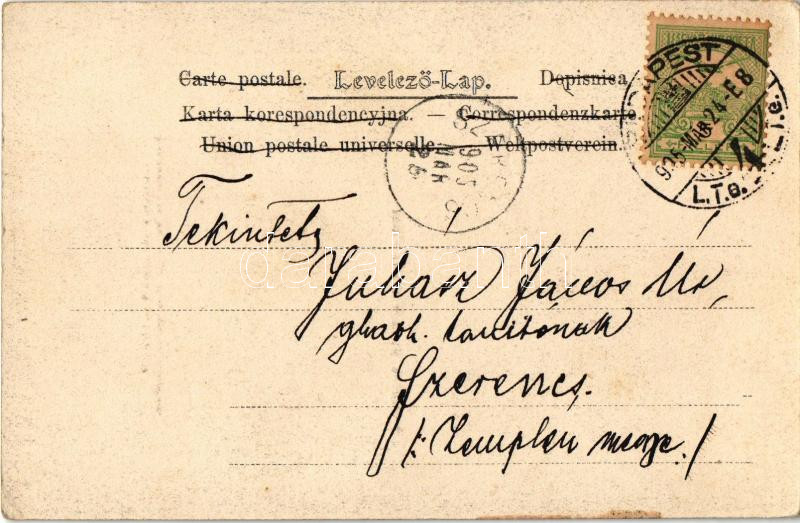 Carte postale. Levelező-Lap. Dopisnica
Karta korespondencyjna. – Correspondenzkarte.
Union postale universelle. – Weltpostverein.
BUDAPEST
905 MAR 24 E 8
L.T.G.
905
MAR
Tekintetes
Juhász János Úr,
tanitónak
Szerencs.
/: Zemplén megye. /
darabanth